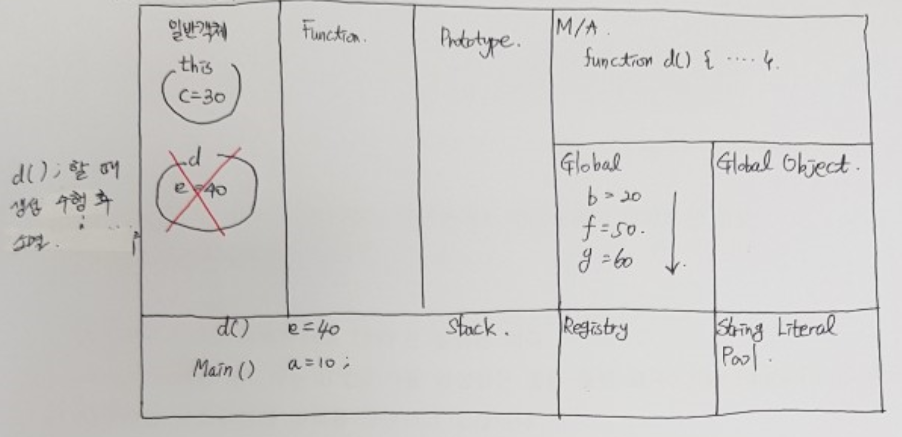 일반객체
this
C=30
d
e=40
d(); 할 때
생성 수행 후
소멸.
Function.
Prototype.
M/A.
function d() { ···· }.
Global
b=20
f=50.
g=60
Global Object.
d() e=40
Main() a=10;
Stack.
Registry
String Literal
Pool.